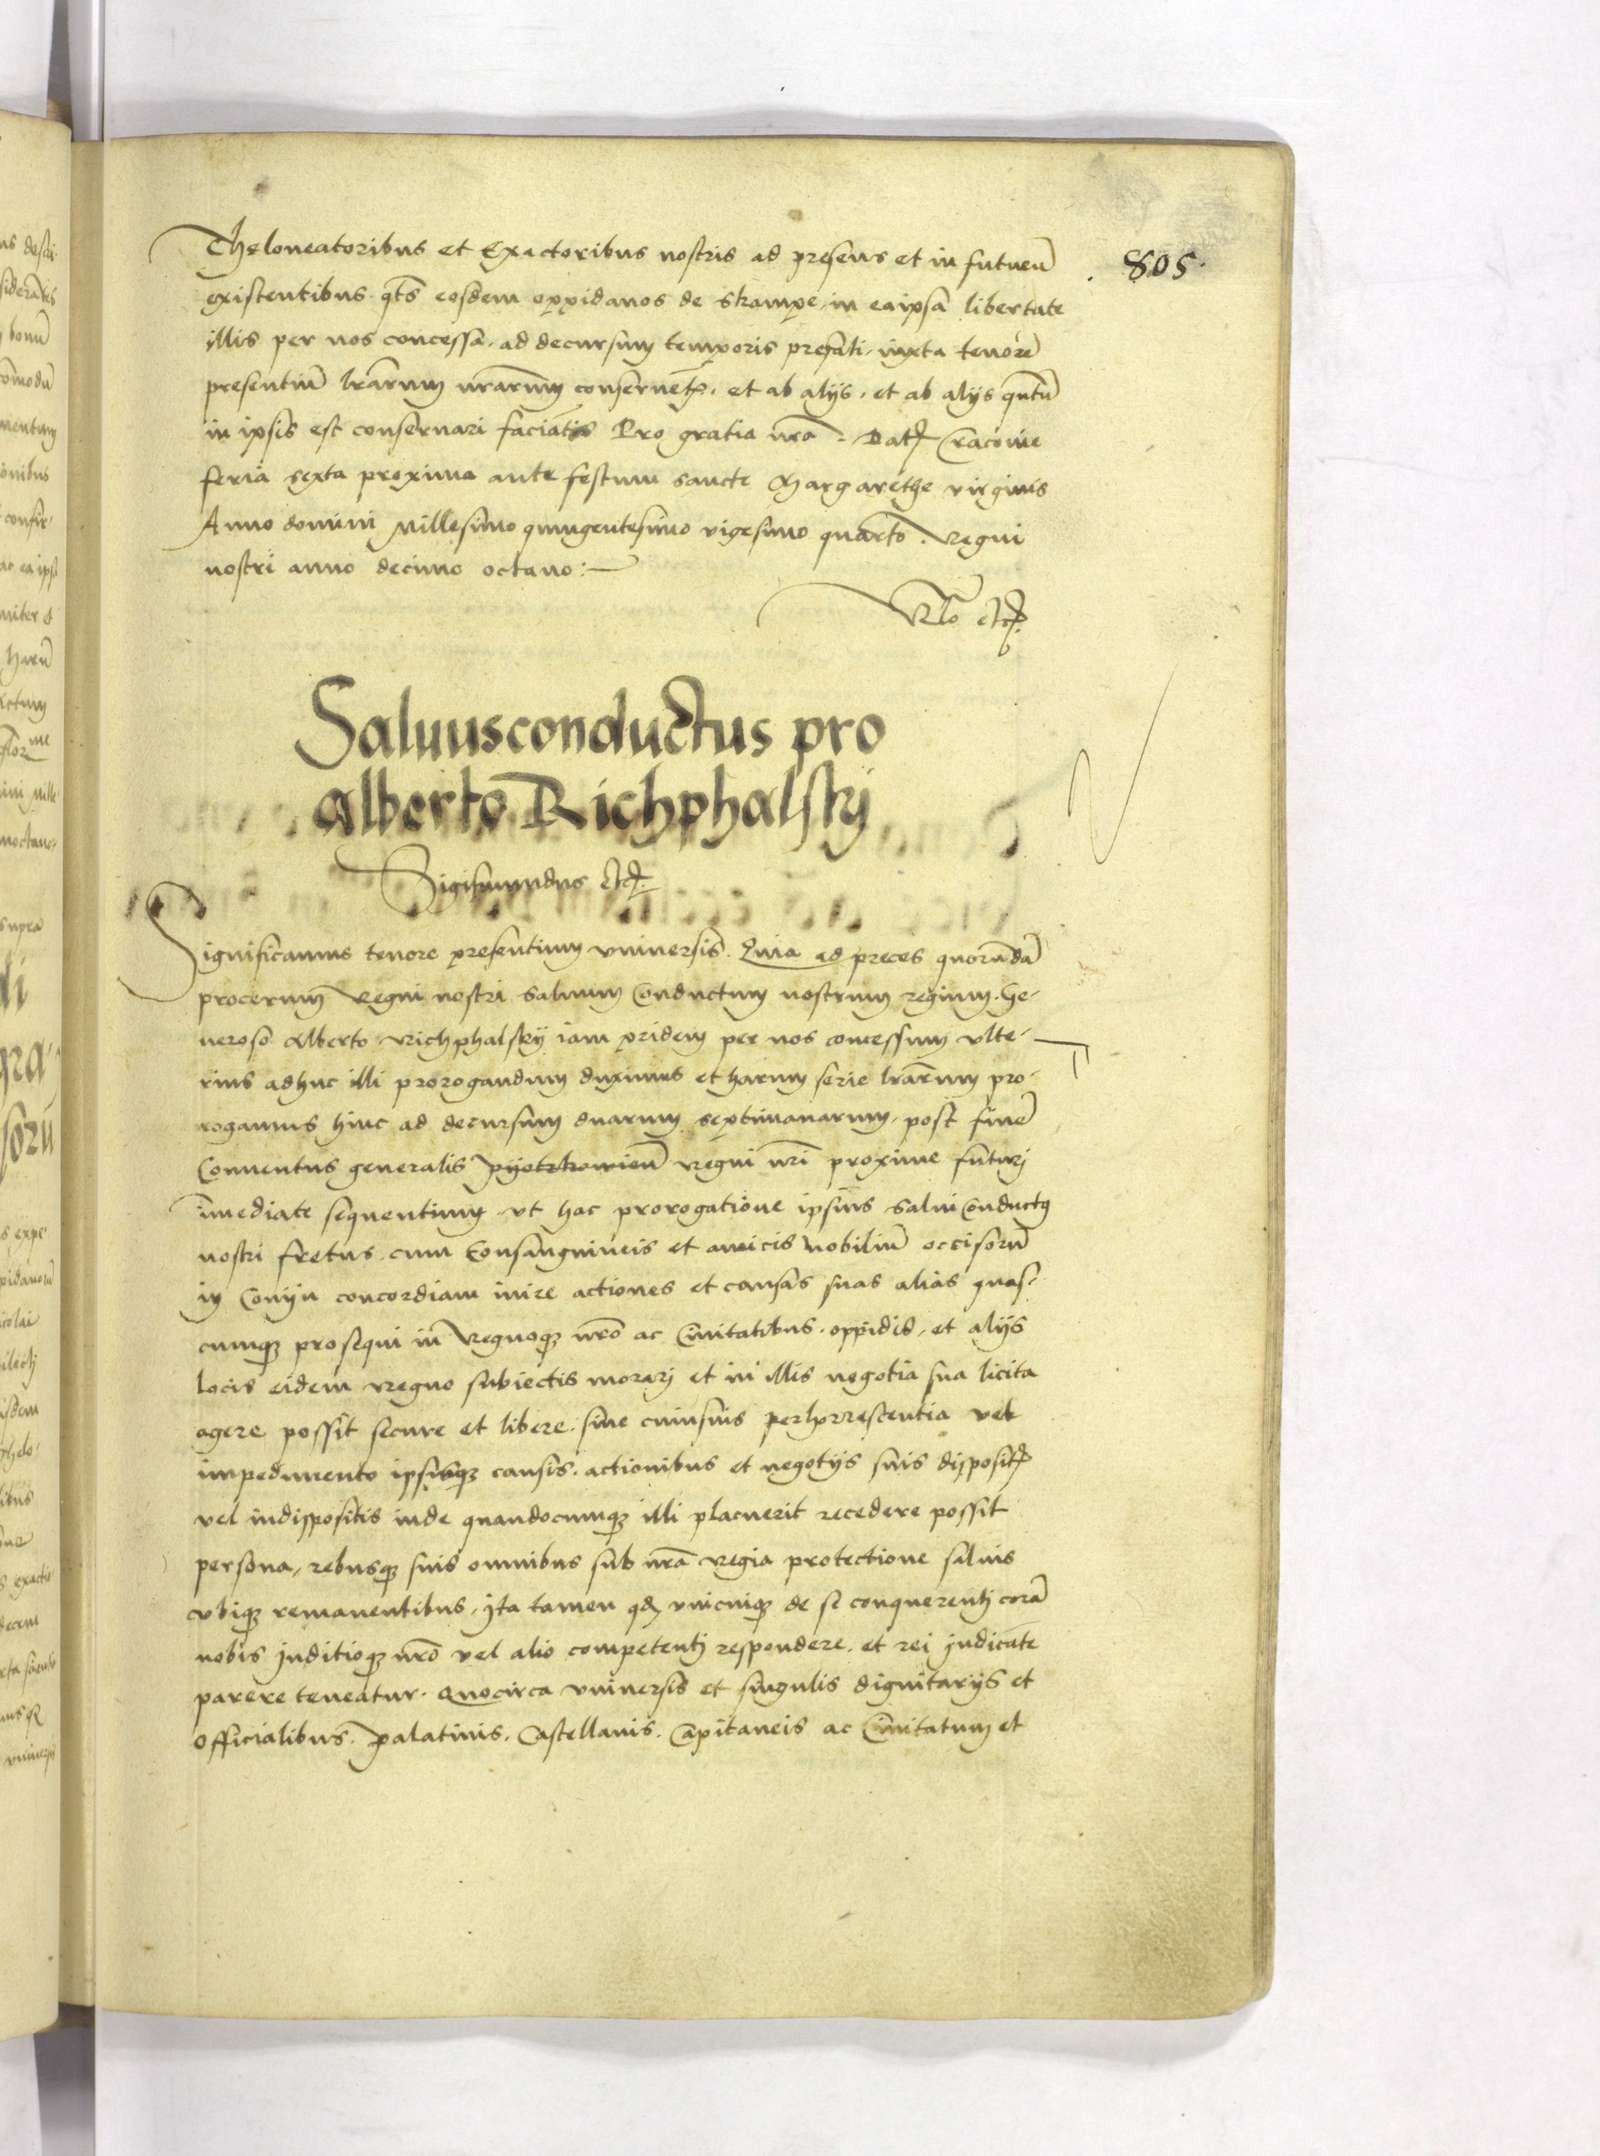 805
Theloneatoribus et Exactoribus nostris ad presens et in futurũ
existentibus qts eosdem oppidanos de Skampe in ea ipsa libertate
illis per nos concessa, ad decursum temporis prefati, iuxta tenorẽ
presentiũ lrarum nrarum conseruet, et ab alijs, et ab alijs qntũ
in ipsis est conseruari faciatis Pro gratia nra. Dat Cracouie
feria sexta proxima ante festum sancte Margarethe virginis
Anno domini Millesimo quingentesimo vigesimo quarto. Regni
nostri anno decimo octauo:
Rlo etc.
Saluusconductus pro
Alberto Richphalskij
Sigismundus etc.
Significamus tenore presentium vniuersis. Quia ad preces quorundã
procerum Regni nostri saluum Conductum nostrum regium. Ge-
neroso Alberto Richphalskij iam pridem per nos concessum vlte-
rius adhuc illi prorogandum duximus et harum serie lrarum pro-
rogamus hinc ad decursum duarum septimanarum, post finẽ
Conuentus generalis Pijotrkowieñ Regni nri proxime futuri
imediate sequentium vt hac prorogatione ipsius salui Conductus
nostri fretus, cum Consanguineis et amicis nobiliũ occisorũ
in Conijn concordiam inire actiones et causas suas alias quas-
cumq prosequi in Regnoq nro ac Ciuitatibus, oppidis, et alijs
locis eidem Regno subiectis morari et in illis negotia sua licita
agere possit secure et libere, sine cuiusuis perhorrescentia vel
impedimento ipsisq causis, actionibus et negotijs suis disposit
vel indispositis inde quandocumq illi placuerit recedere possit
persona, rebusq suis omnibus sub nra regia protectione saluis
vbiq remanentibus, Ita tamen qd vnicuiq de se conquerenti corã
nobis Juditioq nro vel alio competenti respondere, et rei Judicate
parere teneatur. Quocirca vniuersis et singulis dignitarijs et
officialibus, Palatinis, Castellanis, Capitaneis ac Ciuitatum et